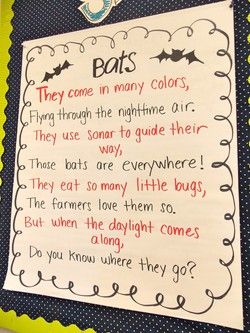 Bats
They come in many colors,
Flying through the nighttime air.
They use sonar to guide their
way,
Those bats are everywhere!
They eat so many little bugs,
The farmers love them so.
But when the daylight comes
along,
Do you know where they go?